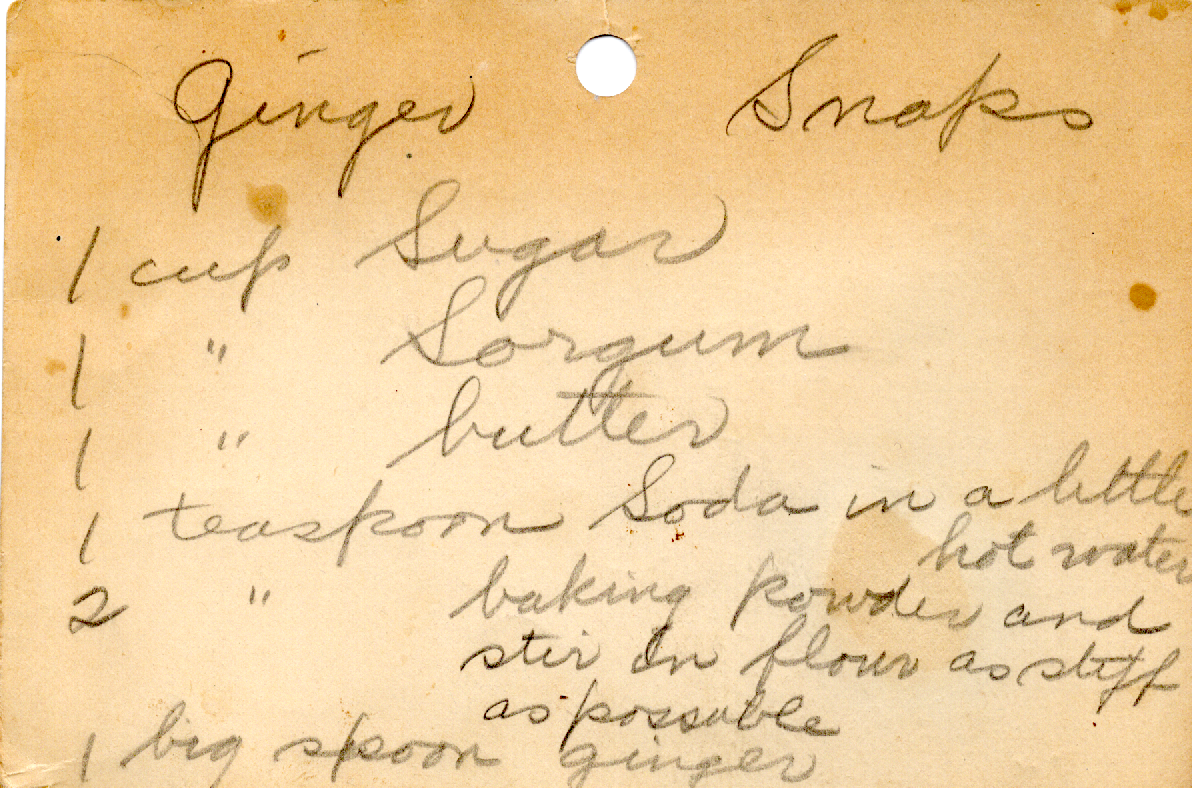 Ginger Snaps
1 cup Sugar
1 " Sorgum
1 " butter
1 teaspoon Soda in a little
hot water
2 " baking powder and
stir in flour as stiff
as possable
1 big spoon ginger